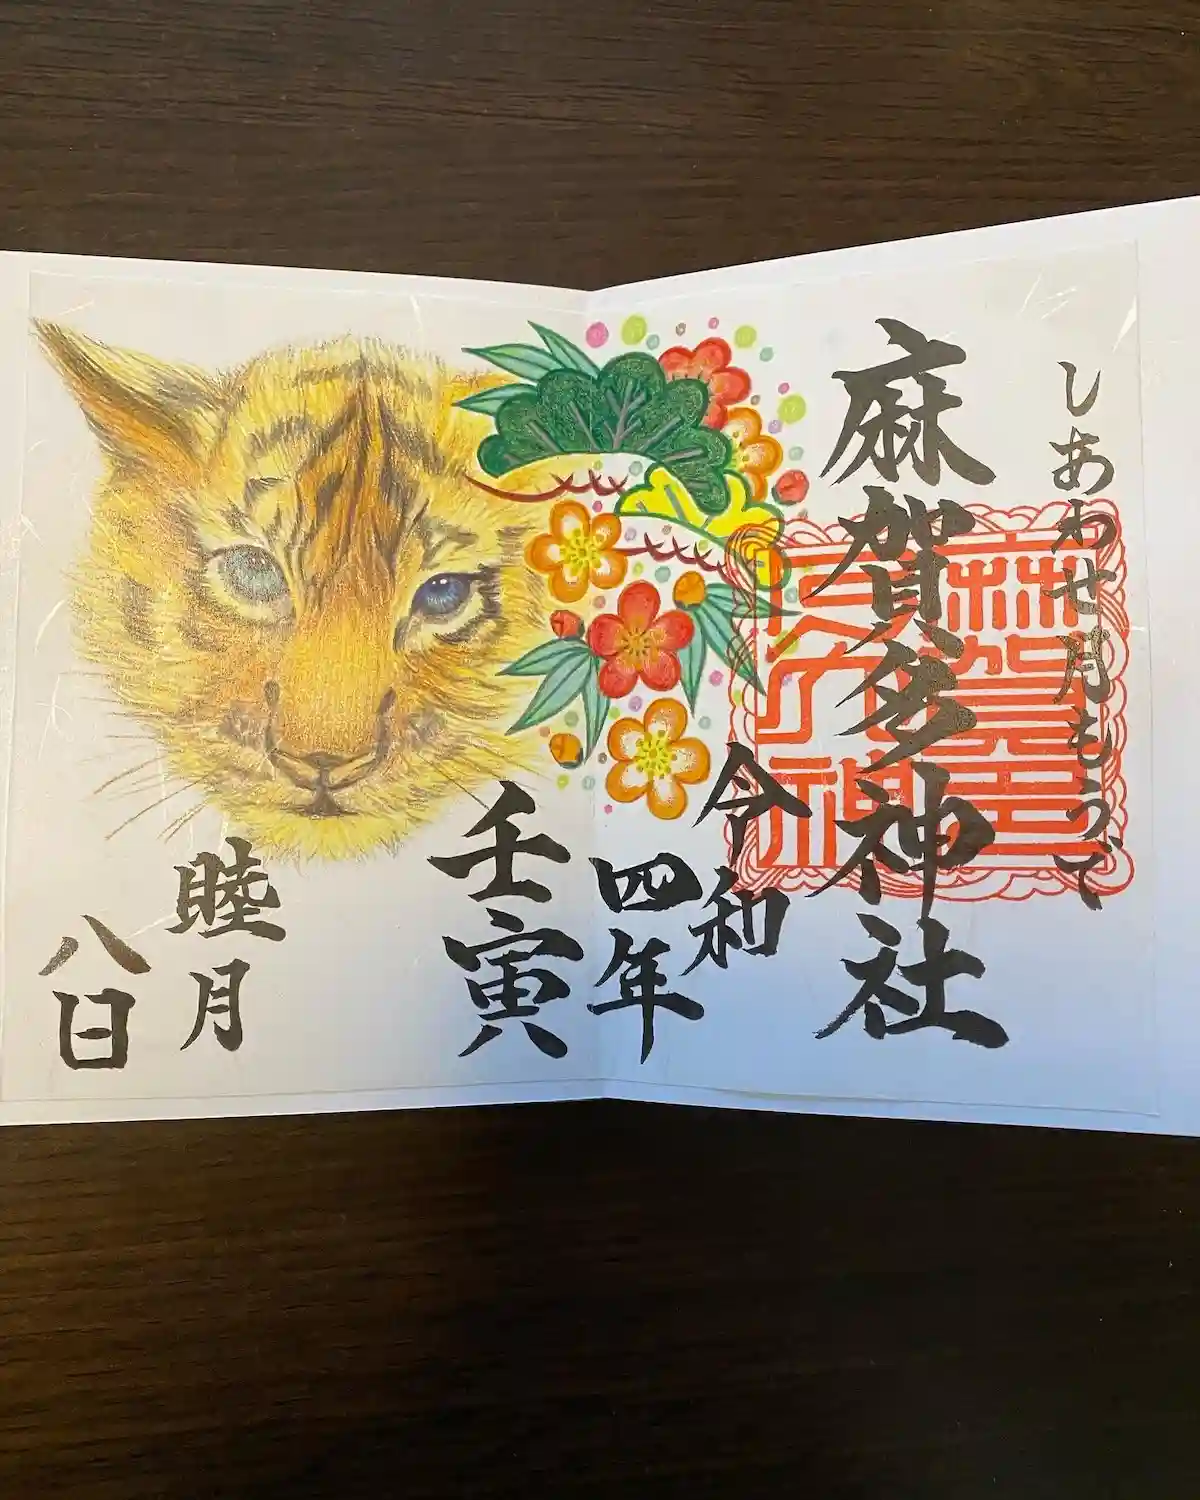 しあわせ月もうで
麻賀多神社
令和
四年
壬寅
睦月
八日